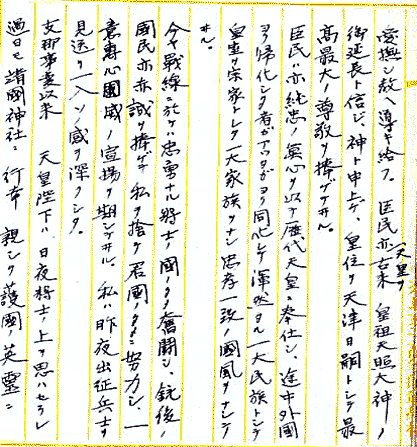 愛撫シ教ヘ導キ給フ。臣民亦古来天皇ヲ皇祖天照大神ノ
御延長ト信ジ、神ト申上ゲ、皇位ヲ天津日嗣トシテ最
高最大ノ尊敬ヲ捧ゲテヰル。
臣民ハ亦純忠ノ真心ヲ以テ歴代天皇ニ奉仕シ、途中外国
ヨリ帰化シタ者ガアツタガヨク同化シテ渾然タル一大民族トシテ
皇室ヲ宗家トシタ一大家族ヲナシ忠孝一致ノ國風ヲナシテ
ヰル。
今ヤ戦線ニ於テハ忠勇ナル将士ノ國ノタメ奮闘シ、銃後ノ
國民亦誠ヲ捧ゲテ私ヲ捨テ君國ノタメニ努力シ、一
意専心國威ノ宣揚ヲ期シテヰル。私ハ昨夜出征兵士ヲ
見送リ一入ソノ感ヲ深クシタ。
支那事変以来 天皇陛下ハ日夜将士ノ上ヲ思ハセラレ
過日モ靖國神社ニ行幸 親シク護國ノ英霊ニ